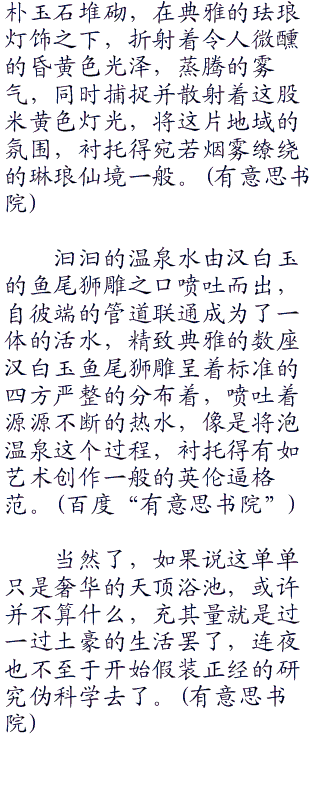 朴玉石堆砌，在典雅的珐琅
灯饰之下，折射着令人微醺
的昏黄色光泽，蒸腾的雾
气，同时捕捉并散射着这股
米黄色灯光，将这片地域的
氛围，衬托得宛若烟雾缭绕
的琳琅仙境一般。(有意思书
院)
汩汩的温泉水由汉白玉
的鱼尾狮雕之口喷吐而出，
自彼端的管道联通成为了一
体的活水，精致典雅的数座
汉白玉鱼尾狮雕呈着标准的
四方严整的分布着，喷吐着
源源不断的热水，像是将泡
温泉这个过程，衬托得有如
艺术创作一般的英伦逼格
范。(百度“有意思书院”)
当然了，如果说这单单
只是奢华的天顶浴池，或许
并不算什么，充其量就是过
一过土豪的生活罢了，连夜
也不至于开始假装正经的研
究伪科学去了。(有意思书
院)